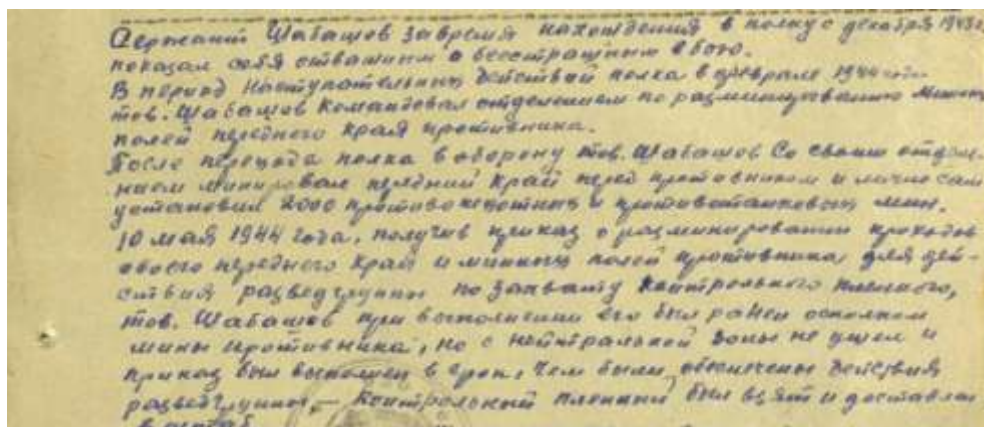 Сержант Шабашов за время нахождения в полку с декабря 1943г.
показал себя отважным и бесстрашным в бою.
В период наступательных действий полка в феврале 1944
тов. Шабашов командовал отделением по разминированию минных
полей переднего края противника.
После перехода полка в оборону тов. Шабашов со своим отделе-
нием минировал передний край перед противником и лично сам
установил 2000 противопехотных и противотанковых мин.
10 мая 1944 года, получив приказ о разминировании проходов
своего переднего края и минных полей противника для дей-
ствия разведгруппы по захвату контрольного пленного,
тов. Шабашов при выполнении его был ранен осколком
мины противника, но с нейтральной зоны не ушел и
приказ был выполнен в срок, чем были обеспечены действия
разведгруппы, – контрольный пленный был взят и доставлен
в штаб